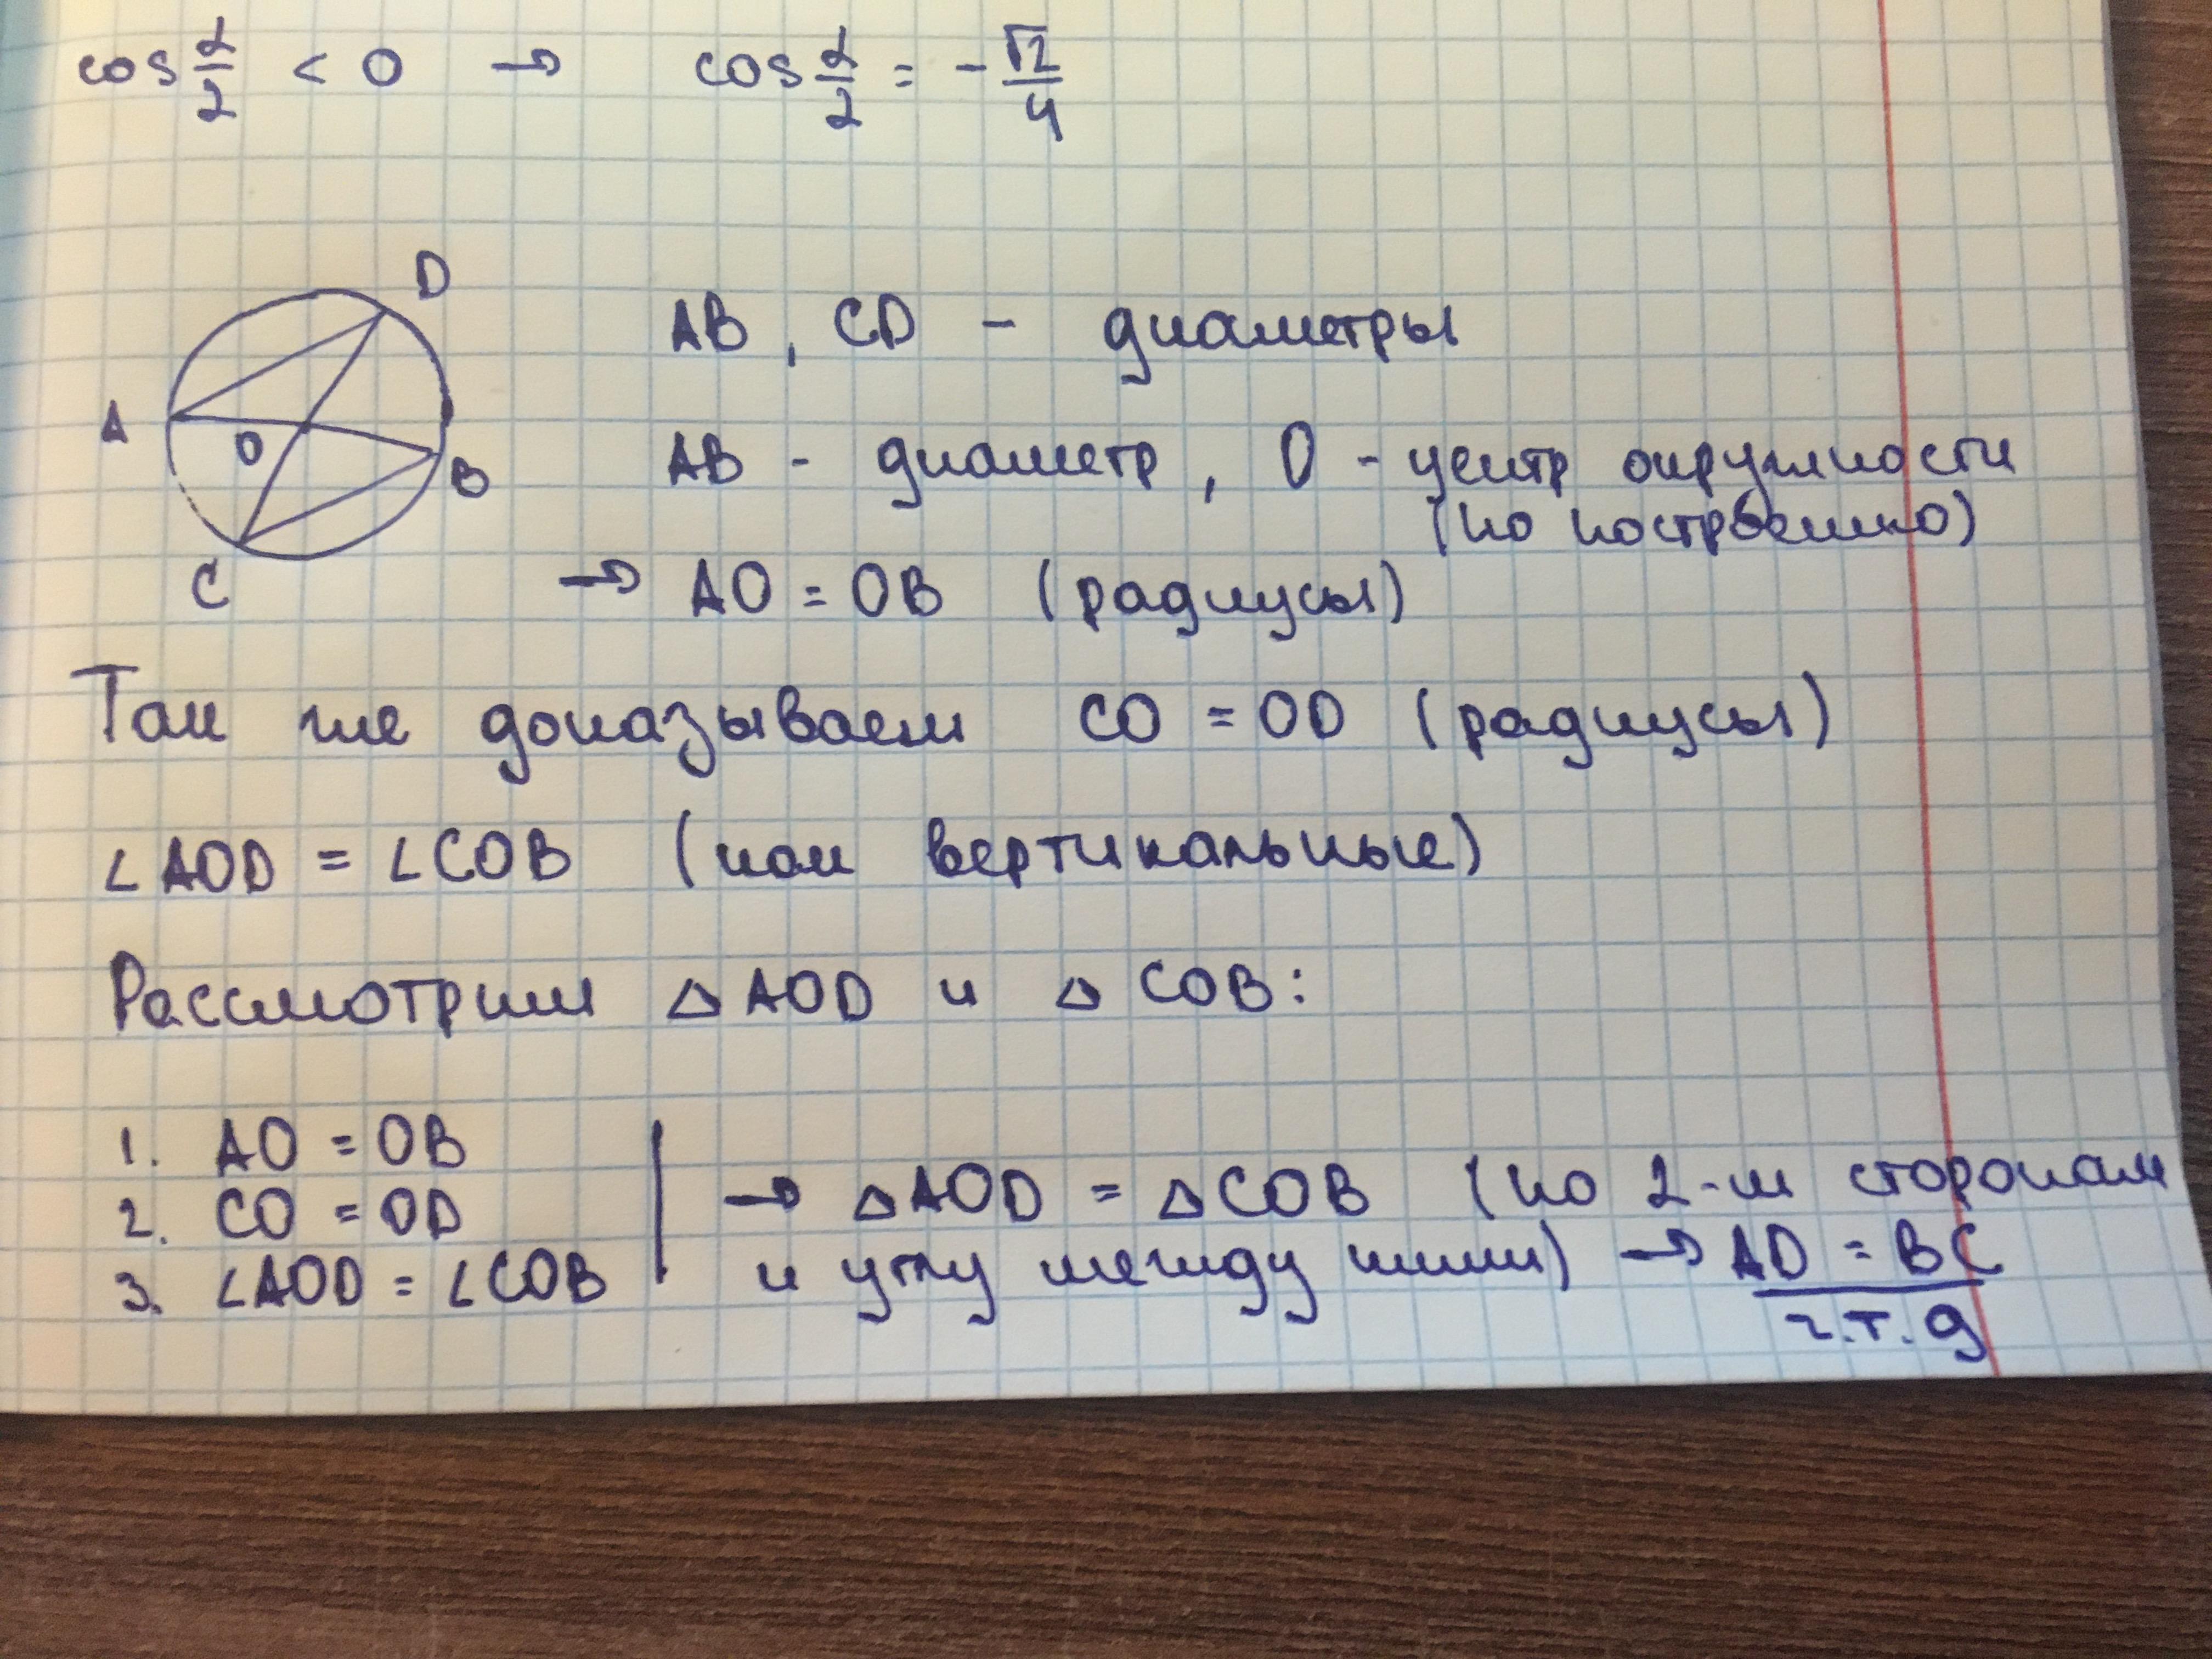 cos α/2 < 0 → cos α/2 = -√2/4
D
AB, CD - диаметры
A
O
B
AB - диаметр, O - центр окружности
(по построению)
C
→ AO = OB (радиусы)
Так же доказываем CO = OD (радиусы)
∠AOD = ∠COB (как вертикальные)
Рассмотрим △AOD и △COB:
1. AO = OB
2. CO = OD
3. ∠AOD = ∠COB
→ △AOD = △COB (по 2-м сторонам
и углу между ними) → AD = BC
ч.т.д